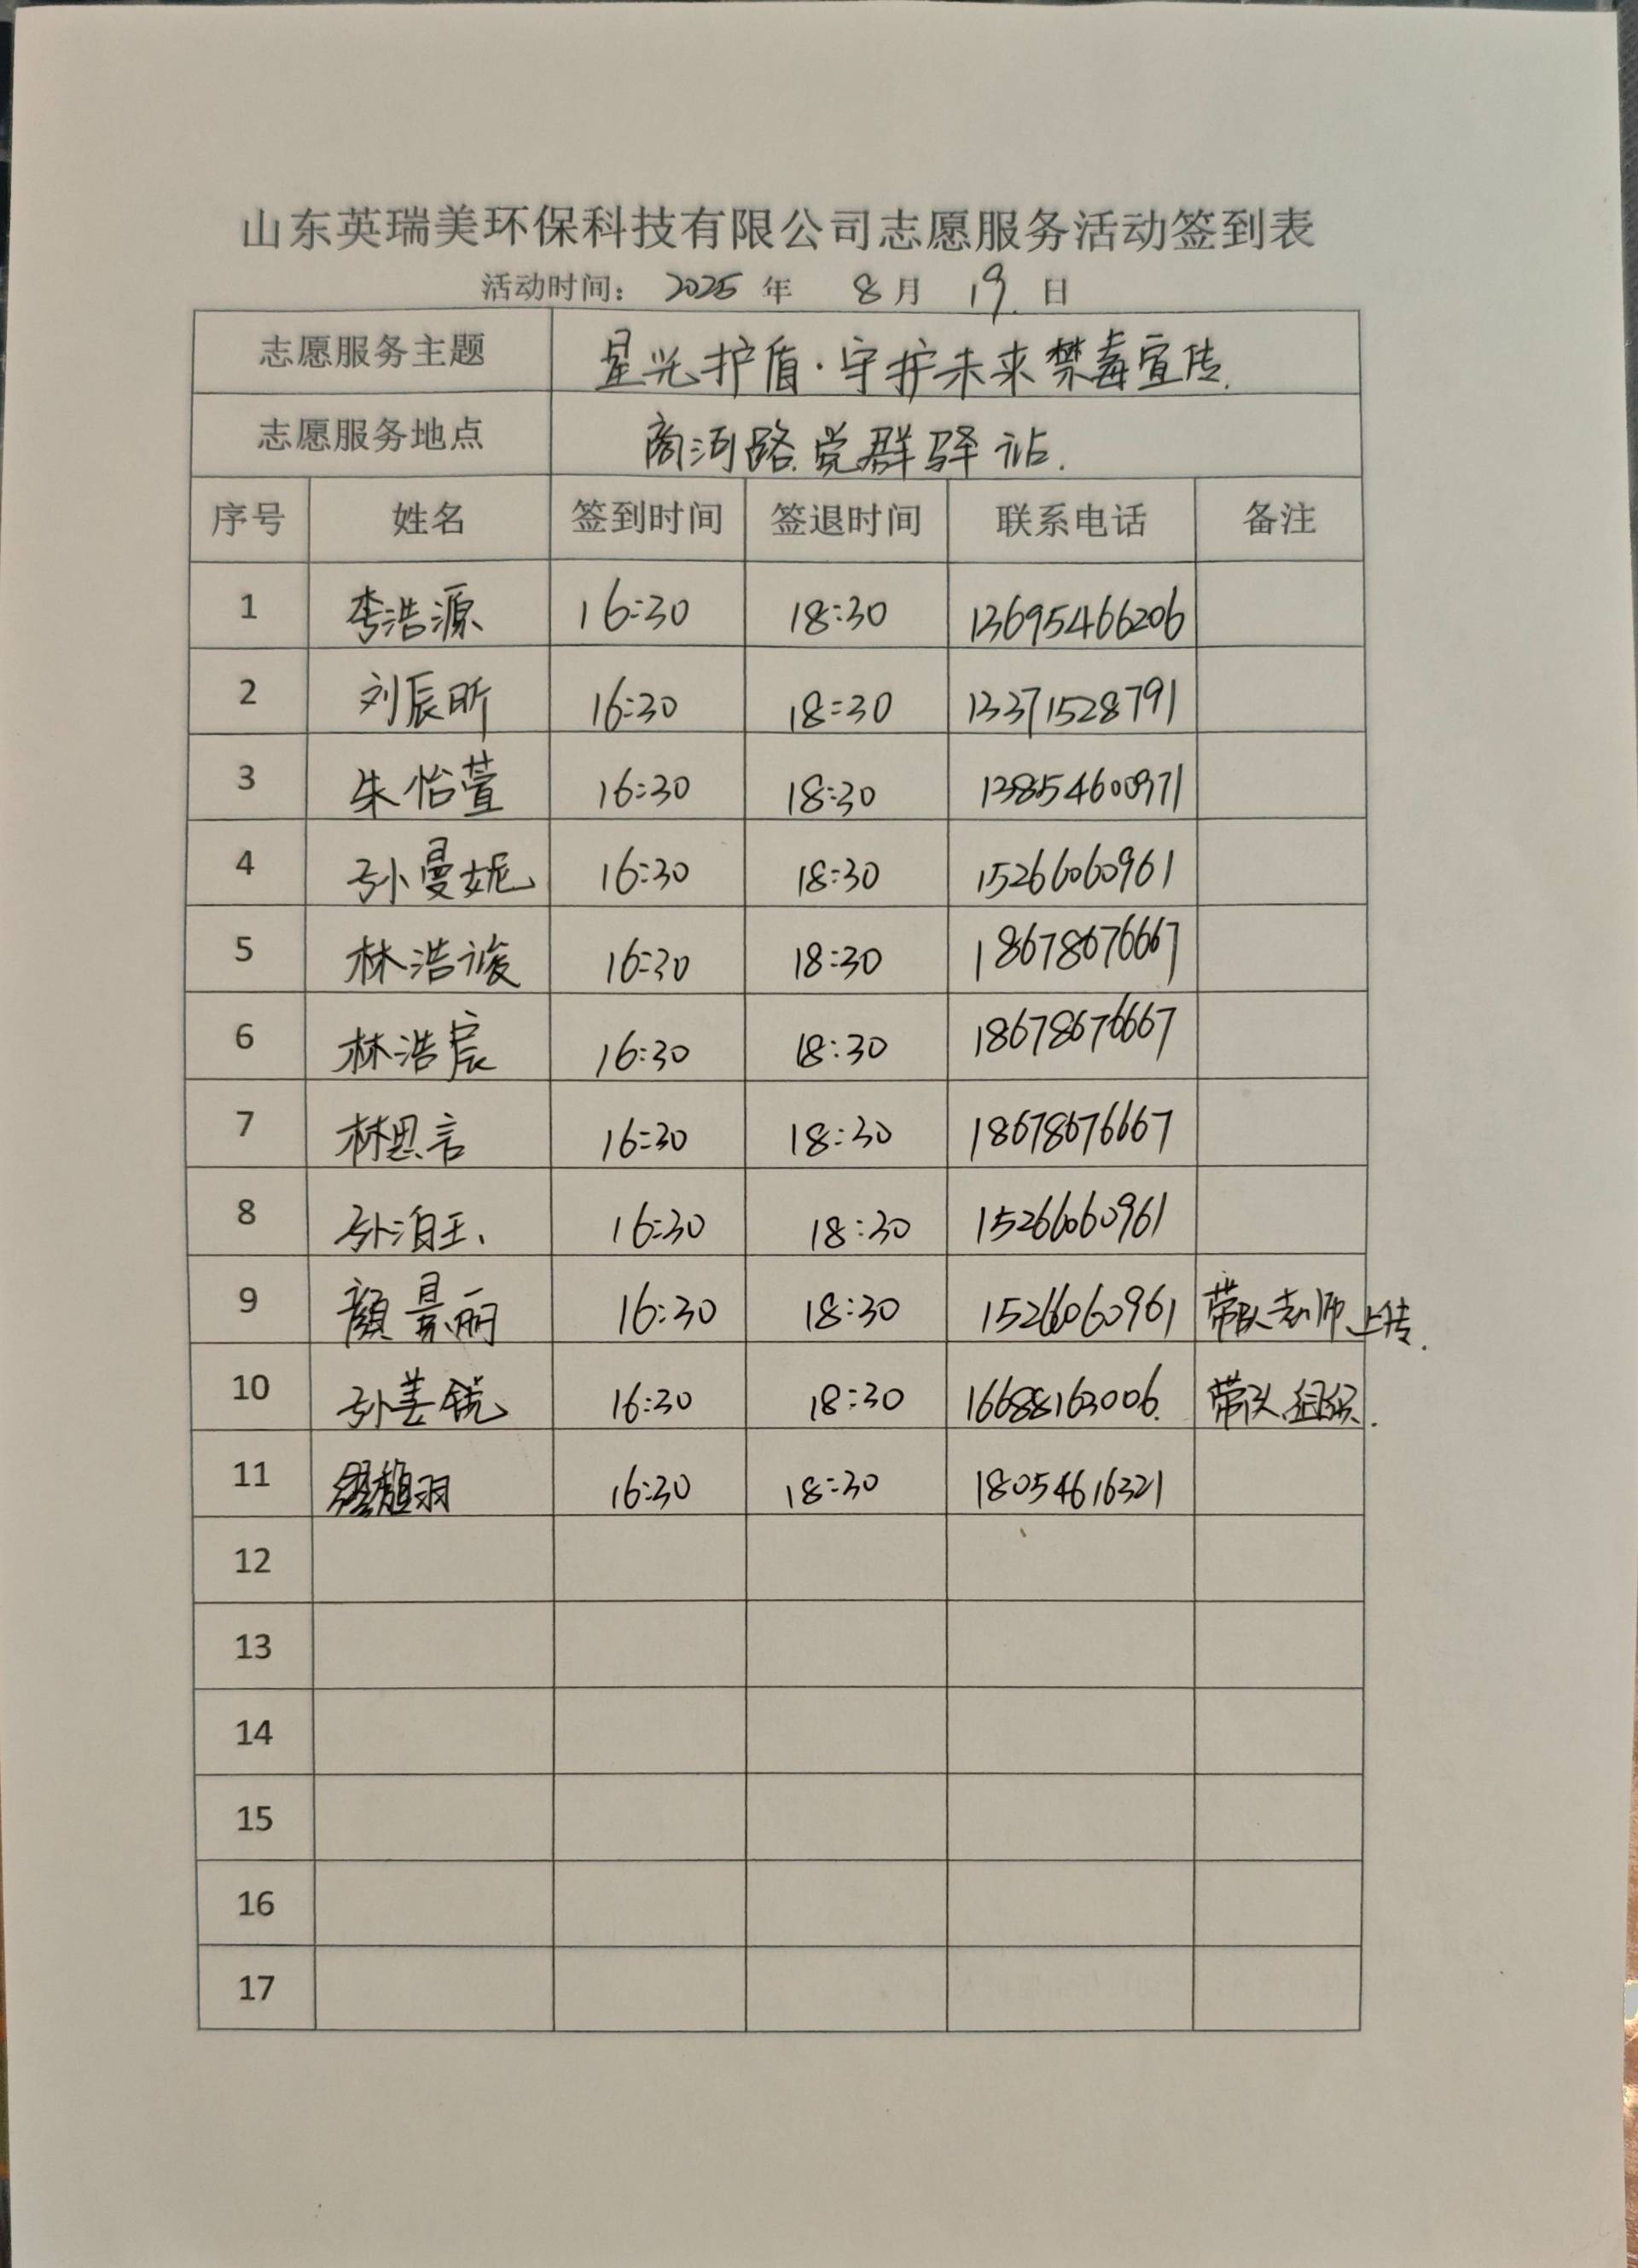 山东英瑞美环保科技有限公司志愿服务活动签到表
活动时间： 2025 年 8 月 19 日
志愿服务主题 星光护盾·守护未来禁毒宣传.
志愿服务地点 商河路党群驿站.
序号 姓名 签到时间 签退时间 联系电话 备注
1 李浩源 16:30 18:30 13695466206
2 刘辰昕 16:30 18:30 13371528791
3 朱怡萱 16:30 18:30 13854600971
4 孙曼妮 16:30 18:30 15266060961
5 林浩竣 16:30 18:30 18678676667
6 林浩宸 16:30 18:30 18678676667
7 林思言 16:30 18:30 18678676667
8 孙泊王 16:30 18:30 15266060961
9 颜景丽 16:30 18:30 15266060961 带队老师上传.
10 孙姜锐 16:30 18:30 16688163006. 带队组织.
11 16:30 18:30 18054616321
12
13
14
15
16
17